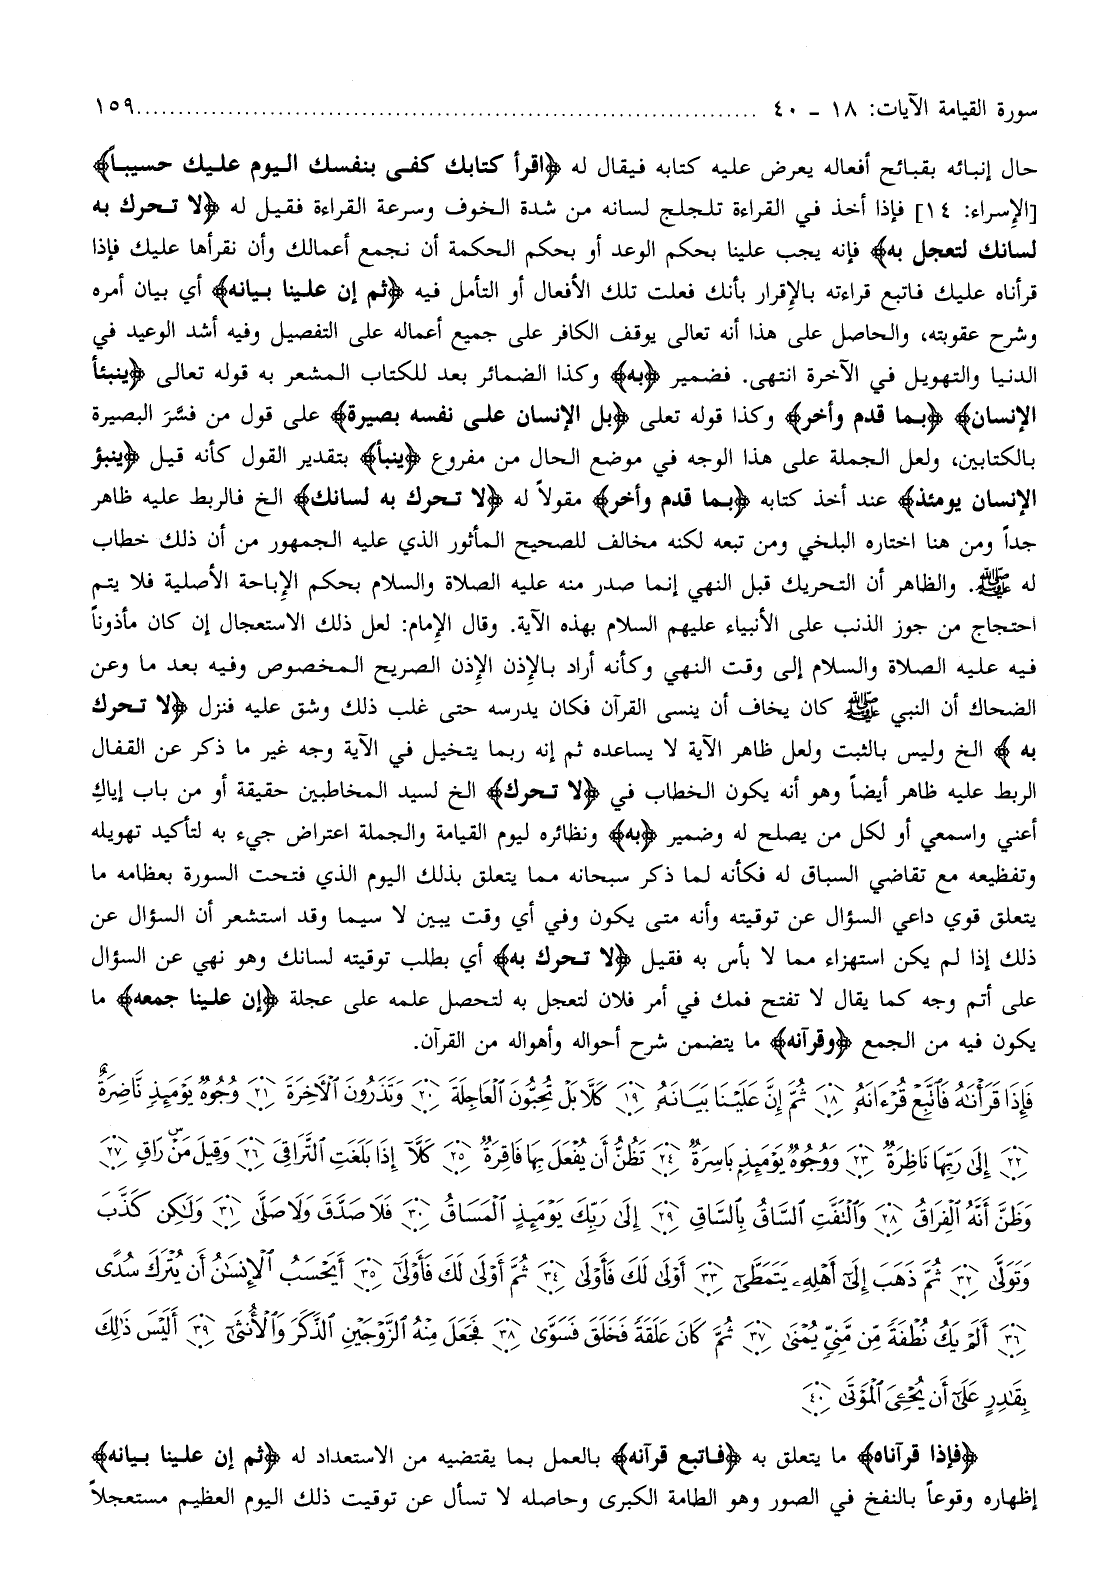 سورة القيامة الآيات: ١٨ ـ ٤٠ ........................................................................ ١٥٩
حال إنبائه بقبائح أفعاله يعرض عليه كتابه فيقال له ﴿اقرأ كتابك كفى بنفسك اليوم عليك حسيباً﴾
[الإِسراء: ١٤] فإذا أخذ في القراءة تلجلج لسانه من شدة الخوف وسرعة القراءة فقيل له ﴿لا تحرك به
لسانك لتعجل به﴾ فإنه يجب علينا بحكم الوعد أو بحكم الحكمة أن نجمع أعمالك وأن نقرأها عليك فإذا
قرأناه عليك فاتبع قراءته بالإِقرار بأنك فعلت تلك الأفعال أو التأمل فيه ﴿ثم إن علينا بيانه﴾ أي بيان أمره
وشرح عقوبته، والحاصل على هذا أنه تعالى يوقف الكافر على جميع أعماله على التفصيل وفيه أشد الوعيد في
الدنيا والتهويل في الآخرة انتهى. فضمير ﴿به﴾ وكذا الضمائر بعد للكتاب المشعر به قوله تعالى ﴿ينبئأ
الإنسان﴾ ﴿بما قدم وأخر﴾ وكذا قوله تعلى ﴿بل الإنسان على نفسه بصيرة﴾ على قول من فسَّرَ البصيرة
بالكتابين، ولعل الجملة على هذا الوجه في موضع الحال من مفروع ﴿ينبأ﴾ بتقدير القول كأنه قيل ﴿ينبؤ
الإنسان يومئذ﴾ عند أخذ كتابه ﴿بما قدم وأخر﴾ مقولاً له ﴿لا تحرك به لسانك﴾ الخ فالربط عليه ظاهر
جداً ومن هنا اختاره البلخي ومن تبعه لكنه مخالف للصحيح المأثور الذي عليه الجمهور من أن ذلك خطاب
له ﷺ. والظاهر أن التحريك قبل النهي إنما صدر منه عليه الصلاة والسلام بحكم الإِباحة الأصلية فلا يتم
احتجاج من جوز الذنب على الأنبياء عليهم السلام بهذه الآية. وقال الإِمام: لعل ذلك الاستعجال إن كان مأذوناً
فيه عليه الصلاة والسلام إلى وقت النهي وكأنه أراد بالإِذن الإِذن الصريح المخصوص وفيه بعد ما وعن
الضحاك أن النبي ﷺ كان يخاف أن ينسى القرآن فكان يدرسه حتى غلب ذلك وشق عليه فنزل ﴿لا تحرك
به ﴾ الخ وليس بالثبت ولعل ظاهر الآية لا يساعده ثم إنه ربما يتخيل في الآية وجه غير ما ذكر عن القفال
الربط عليه ظاهر أيضاً وهو أنه يكون الخطاب في ﴿لا تحرك﴾ الخ لسيد المخاطبين حقيقة أو من باب إياكِ
أعني واسمعي أو لكل من يصلح له وضمير ﴿به﴾ ونظائره ليوم القيامة والجملة اعتراض جيء به لتأكيد تهويله
وتفظيعه مع تقاضي السباق له فكأنه لما ذكر سبحانه مما يتعلق بذلك اليوم الذي فتحت السورة بعظامه ما
يتعلق قوي داعي السؤال عن توقيته وأنه متى يكون وفي أي وقت يبين لا سيما وقد استشعر أن السؤال عن
ذلك إذا لم يكن استهزاء مما لا بأس به فقيل ﴿لا تحرك به﴾ أي بطلب توقيته لسانك وهو نهي عن السؤال
على أتم وجه كما يقال لا تفتح فمك في أمر فلان لتعجل به لتحصل علمه على عجلة ﴿إن علينا جمعه﴾ ما
يكون فيه من الجمع ﴿وقرآنه﴾ ما يتضمن شرح أحواله وأهواله من القرآن.
فَإِذَا قَرَأْنَٰهُ فَٱتَّبِعْ قُرْءَانَهُۥ ۝١٨ ثُمَّ إِنَّ عَلَيْنَا بَيَانَهُۥ ۝١٩ كَلَّا بَلْ تُحِبُّونَ ٱلْعَاجِلَةَ ۝٢٠ وَتَذَرُونَ ٱلْأَخِرَةَ ۝٢١ وُجُوهٌ يَوْمَئِذٍ نَّاضِرَةٌ
۝٢٢ إِلَىٰ رَبِّهَا نَاظِرَةٌ ۝٢٣ وَوُجُوهٌ يَوْمَئِذٍۭ بَاسِرَةٌ ۝٢٤ تَظُنُّ أَن يُفْعَلَ بِهَا فَاقِرَةٌ ۝٢٥ كَلَّآ إِذَا بَلَغَتِ ٱلتَّرَاقِىَ ۝٢٦ وَقِيلَ مَنْۜ رَاقٍ ۝٢٧
وَظَنَّ أَنَّهُ ٱلْفِرَاقُ ۝٢٨ وَٱلْتَفَّتِ ٱلسَّاقُ بِٱلسَّاقِ ۝٢٩ إِلَىٰ رَبِّكَ يَوْمَئِذٍ ٱلْمَسَاقُ ۝٣٠ فَلَا صَدَّقَ وَلَا صَلَّىٰ ۝٣١ وَلَٰكِن كَذَّبَ
وَتَوَلَّىٰ ۝٣٢ ثُمَّ ذَهَبَ إِلَىٰٓ أَهْلِهِۦ يَتَمَطَّىٰٓ ۝٣٣ أَوْلَىٰ لَكَ فَأَوْلَىٰ ۝٣٤ ثُمَّ أَوْلَىٰ لَكَ فَأَوْلَىٰٓ ۝٣٥ أَيَحْسَبُ ٱلْإِنسَٰنُ أَن يُتْرَكَ سُدًى
۝٣٦ أَلَمْ يَكُ نُطْفَةً مِّن مَّنِىٍّ يُمْنَىٰ ۝٣٧ ثُمَّ كَانَ عَلَقَةً فَخَلَقَ فَسَوَّىٰ ۝٣٨ فَجَعَلَ مِنْهُ ٱلزَّوْجَيْنِ ٱلذَّكَرَ وَٱلْأُنثَىٰٓ ۝٣٩ أَلَيْسَ ذَٰلِكَ
بِقَٰدِرٍ عَلَىٰٓ أَن يُحْۦِىَ ٱلْمَوْتَىٰ ۝٤٠
﴿فإذا قرآناه﴾ ما يتعلق به ﴿فاتبع قرآنه﴾ بالعمل بما يقتضيه من الاستعداد له ﴿ثم إن علينا بيانه﴾
إظهاره وقوعاً بالنفخ في الصور وهو الطامة الكبرى وحاصله لا تسأل عن توقيت ذلك اليوم العظيم مستعجلاً